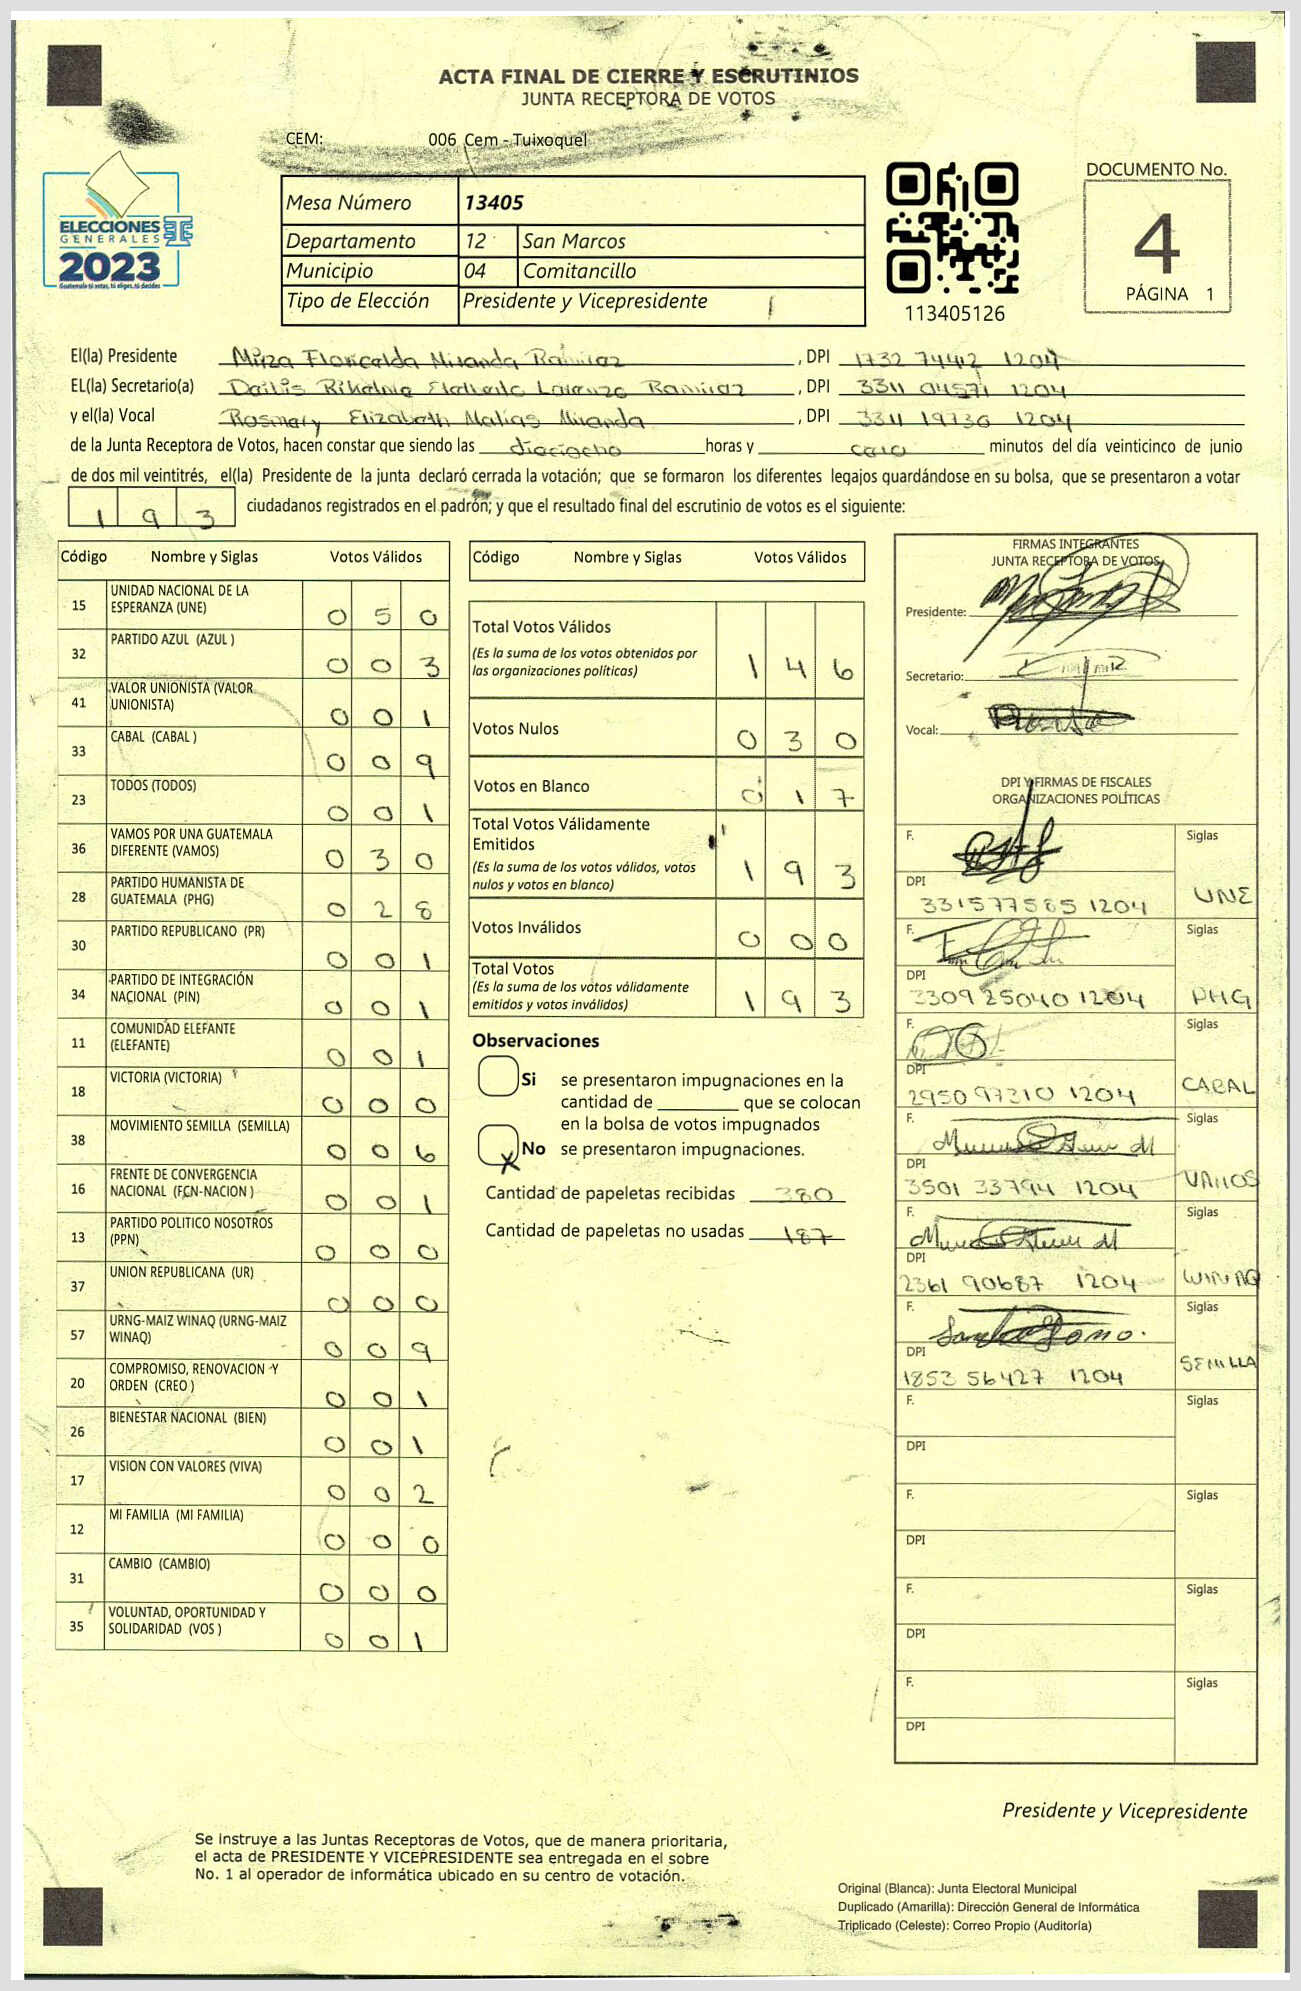 ACTA FINAL DE CIERRE Y ESCRUTINIOS
JUNTA RECEPTORA DE VOTOS
CEM: 006 Cem - Tuixoquel
ELECCIONES
GENERALES
2023
Guatemala tú votas, tú eliges, tú decides
Mesa Número 13405
Departamento 12 San Marcos
Municipio 04 Comitancillo
Tipo de Elección Presidente y Vicepresidente
113405126
DOCUMENTO No.
4
PÁGINA 1
El(la) Presidente Mirza Floricelda Miranda Ramirez , DPI 1732 74412 1204
EL(la) Secretario(a) Lorenzo Ramirez , DPI 3311 04571 1204
y el(la) Vocal Rosmary Elizabeth Matias Miranda , DPI 3311 19736 1204
de la Junta Receptora de Votos, hacen constar que siendo las dieciocho horas y cero minutos del día veinticinco de junio
de dos mil veintitrés, el(la) Presidente de la junta declaró cerrada la votación; que se formaron los diferentes legajos guardándose en su bolsa, que se presentaron a votar
193 ciudadanos registrados en el padrón; y que el resultado final del escrutinio de votos es el siguiente:
Código Nombre y Siglas Votos Válidos
15 UNIDAD NACIONAL DE LA ESPERANZA (UNE) 0 5 0
32 PARTIDO AZUL (AZUL ) 0 0 3
41 VALOR UNIONISTA (VALOR UNIONISTA) 0 0 1
33 CABAL (CABAL ) 0 0 9
23 TODOS (TODOS) 0 0 1
36 VAMOS POR UNA GUATEMALA DIFERENTE (VAMOS) 0 3 0
28 PARTIDO HUMANISTA DE GUATEMALA (PHG) 0 2 8
30 PARTIDO REPUBLICANO (PR) 0 0 1
34 PARTIDO DE INTEGRACIÓN NACIONAL (PIN) 0 0 1
11 COMUNIDAD ELEFANTE (ELEFANTE) 0 0 1
18 VICTORIA (VICTORIA) 0 0 0
38 MOVIMIENTO SEMILLA (SEMILLA) 0 0 6
16 FRENTE DE CONVERGENCIA NACIONAL (FCN-NACION ) 0 0 1
13 PARTIDO POLITICO NOSOTROS (PPN) 0 0 0
37 UNION REPUBLICANA (UR) 0 0 0
57 URNG-MAIZ WINAQ (URNG-MAIZ WINAQ) 0 0 9
20 COMPROMISO, RENOVACION Y ORDEN (CREO ) 0 0 1
26 BIENESTAR NACIONAL (BIEN) 0 0 1
17 VISION CON VALORES (VIVA) 0 0 2
12 MI FAMILIA (MI FAMILIA) 0 0 0
31 CAMBIO (CAMBIO) 0 0 0
35 VOLUNTAD, OPORTUNIDAD Y SOLIDARIDAD (VOS ) 0 0 1
Código Nombre y Siglas Votos Válidos
Total Votos Válidos 1 4 6
(Es la suma de los votos obtenidos por
las organizaciones políticas)
Votos Nulos 0 3 0
Votos en Blanco 0 1 7
Total Votos Válidamente
Emitidos 1 9 3
(Es la suma de los votos válidos, votos
nulos y votos en blanco)
Votos Inválidos 0 0 0
Total Votos 1 9 3
(Es la suma de los votos válidamente
emitidos y votos inválidos)
Observaciones
Si se presentaron impugnaciones en la
cantidad de ________ que se colocan
en la bolsa de votos impugnados
X No se presentaron impugnaciones.
Cantidad de papeletas recibidas 380
Cantidad de papeletas no usadas 187
FIRMAS INTEGRANTES
JUNTA RECEPTORA DE VOTOS
Presidente:
Secretario:
Vocal:
DPI Y FIRMAS DE FISCALES
ORGANIZACIONES POLÍTICAS
F. Siglas
DPI 331577585 1204 UNE
F. Siglas
DPI 3309 25040 1204 PHG
F. Siglas
DPI 2950 97210 1204 CABAL
F. Siglas
DPI 3501 33794 1204 VAMOS
F. Siglas
DPI 2361 90687 1204 WINAQ
F. Siglas
DPI 1853 56427 1204 SEMILLA
F. Siglas
DPI
F. Siglas
DPI
F. Siglas
DPI
F. Siglas
DPI
Presidente y Vicepresidente
Se instruye a las Juntas Receptoras de Votos, que de manera prioritaria,
el acta de PRESIDENTE Y VICEPRESIDENTE sea entregada en el sobre
No. 1 al operador de informática ubicado en su centro de votación.
Original (Blanca): Junta Electoral Municipal
Duplicado (Amarilla): Dirección General de Informática
Triplicado (Celeste): Correo Propio (Auditoría)